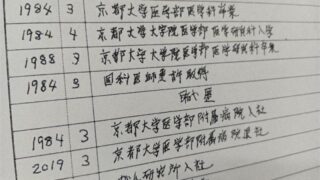 1984 3 京都大学医学部医学科卒業
1984 4 京都大学大学院医学部医学研究科入学
1988 3 京都大学大学院医学部医学研究科卒業
1984 3 国科医師免許取得
職歴
1984 3 京都大学医学部附属病院入社
2019 3 京都大学医学部附属病院退社
研究所入社